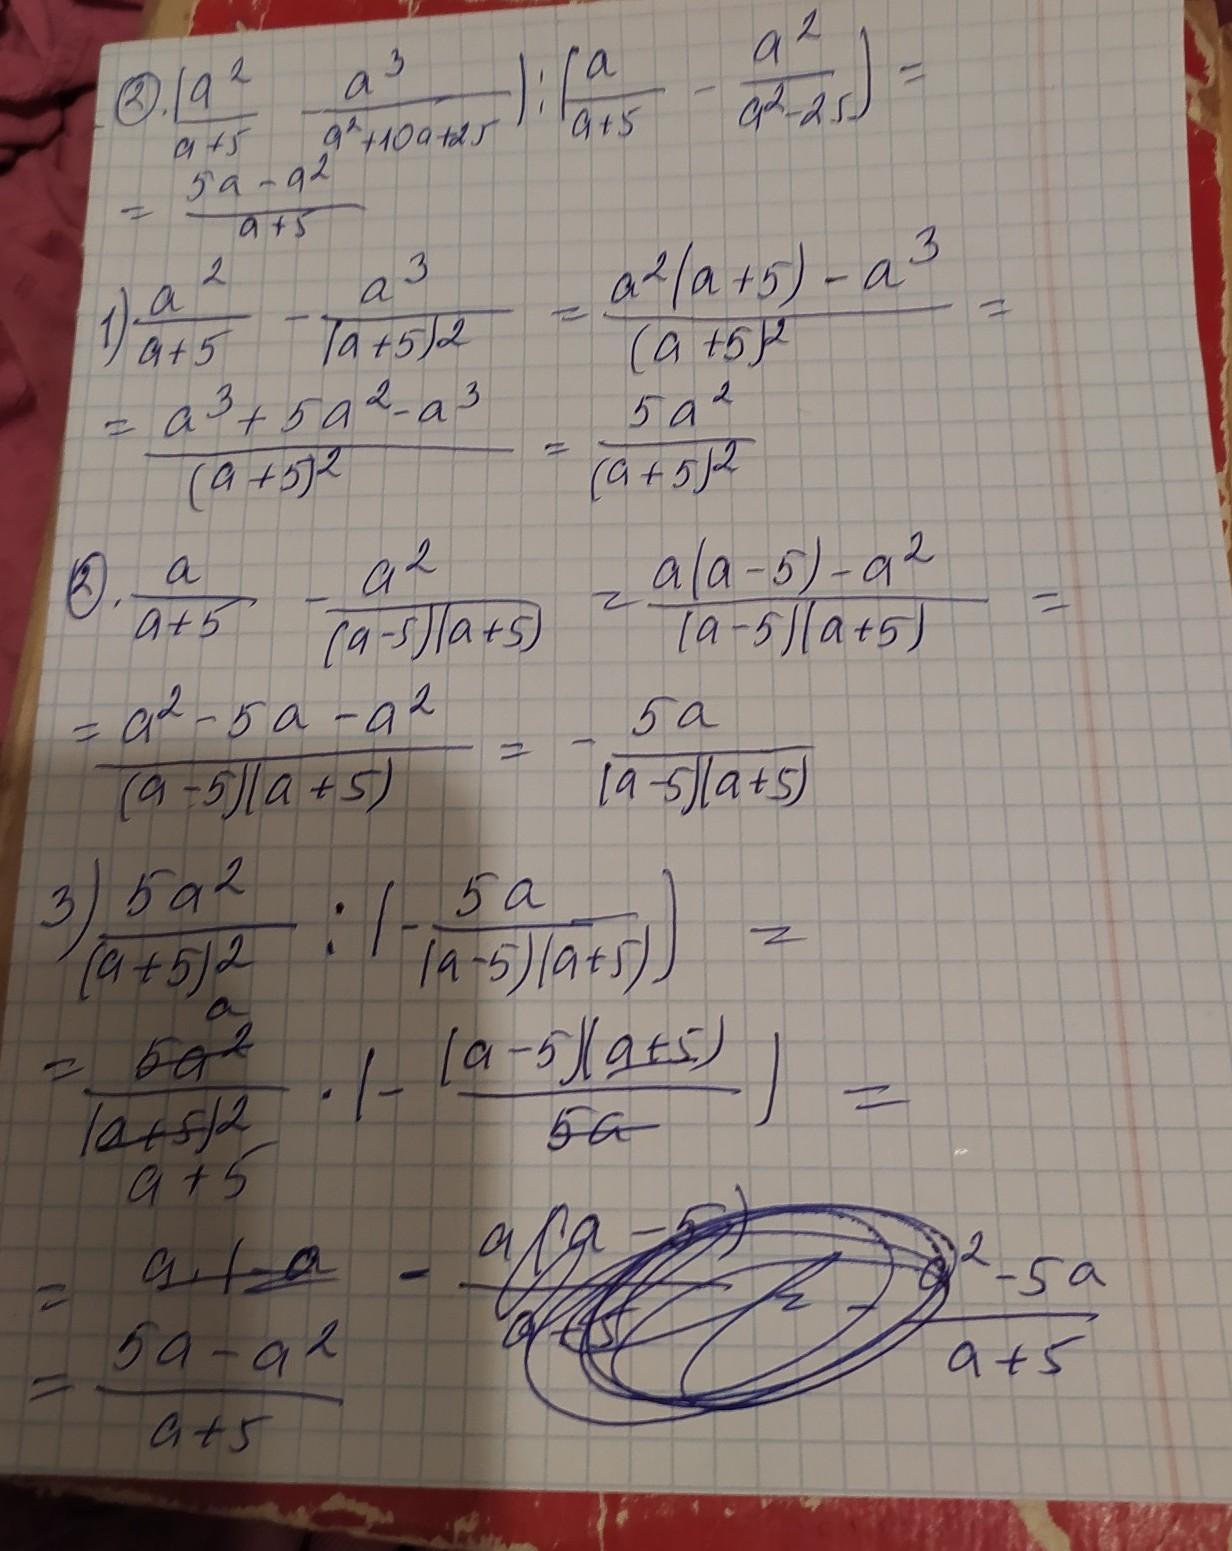 ②. (a²/(a+5) - a³/(a²+10a+25)) : (a/(a+5) - a²/(a²-25)) =
= (5a-a²)/(a+5)
1) a²/(a+5) - a³/(a+5)² = (a²(a+5)-a³)/(a+5)² =
= (a³+5a²-a³)/(a+5)² = 5a²/(a+5)²
②. a/(a+5) - a²/((a-5)(a+5)) = (a(a-5)-a²)/((a-5)(a+5)) =
= (a²-5a-a²)/((a-5)(a+5)) = - 5a/((a-5)(a+5))
3) 5a²/(a+5)² : (- 5a/((a-5)(a+5))) =
a
= 5a²/(a+5)² · (- (a-5)(a+5)/5a) =
a+5
= - a(a-5)/(a+5) = - (a²-5a)/(a+5)
= (5a-a²)/(a+5)